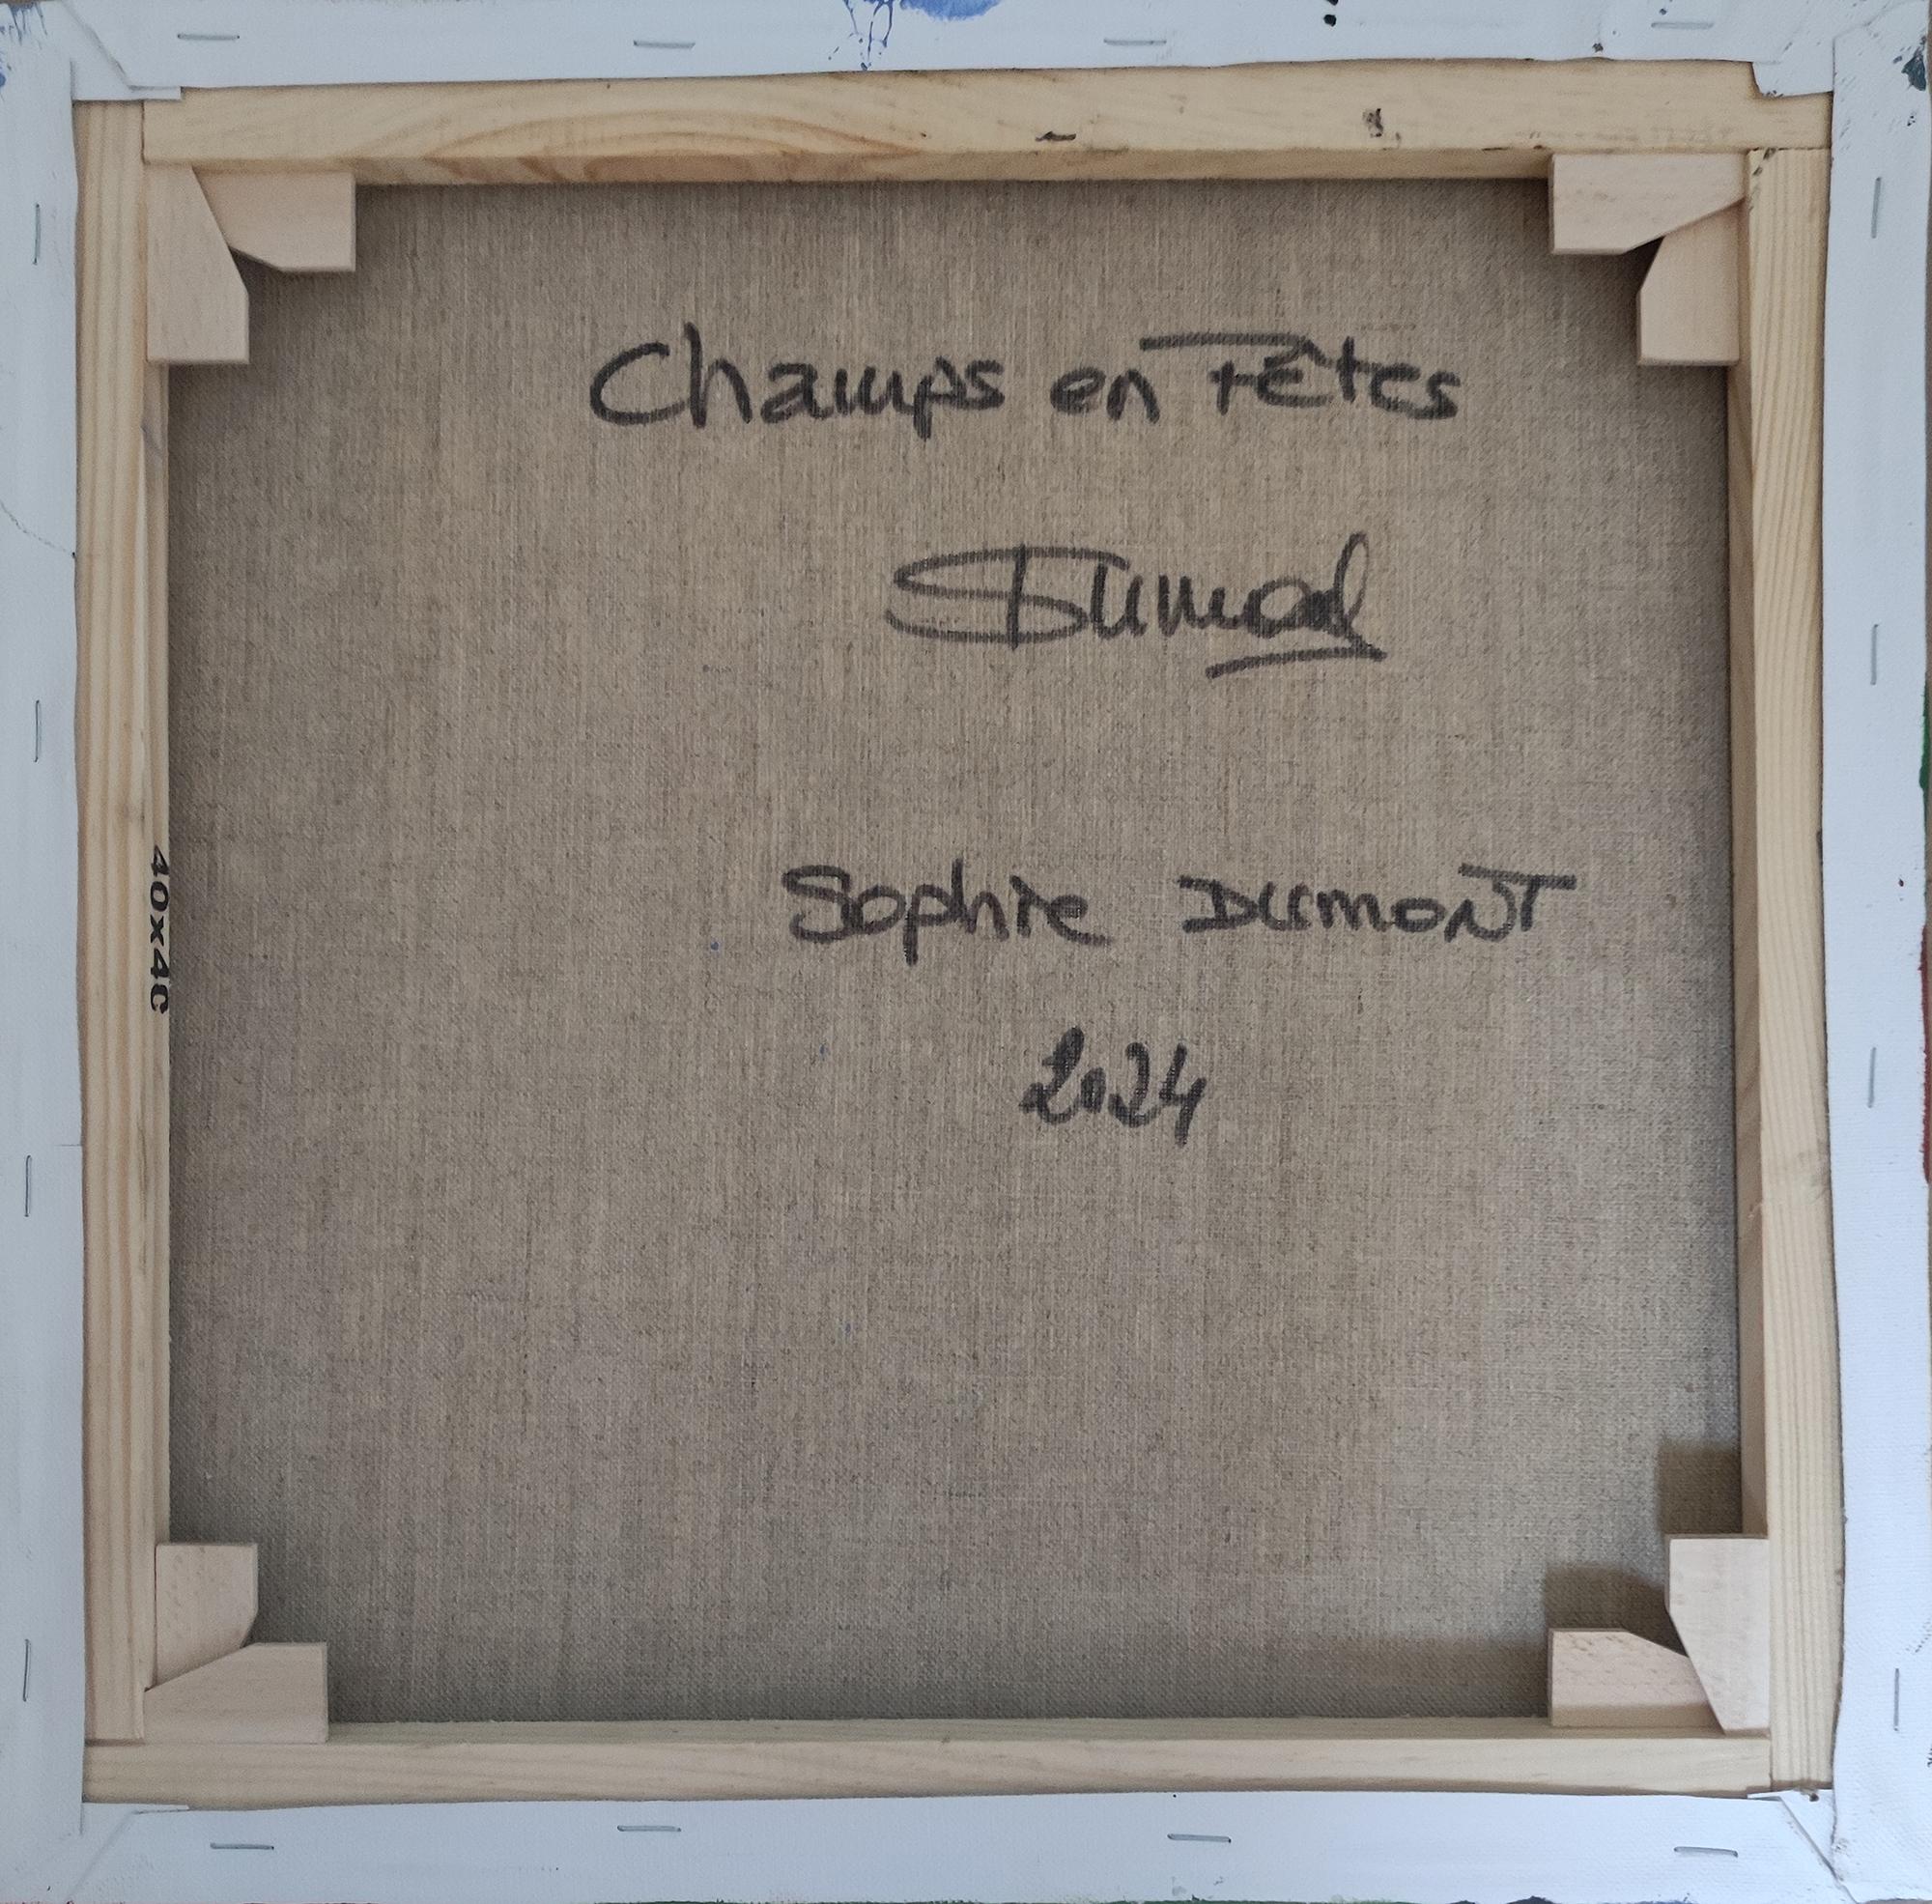 Champs en Fêtes
SDumont
Sophie DUMONT
2024
40x40